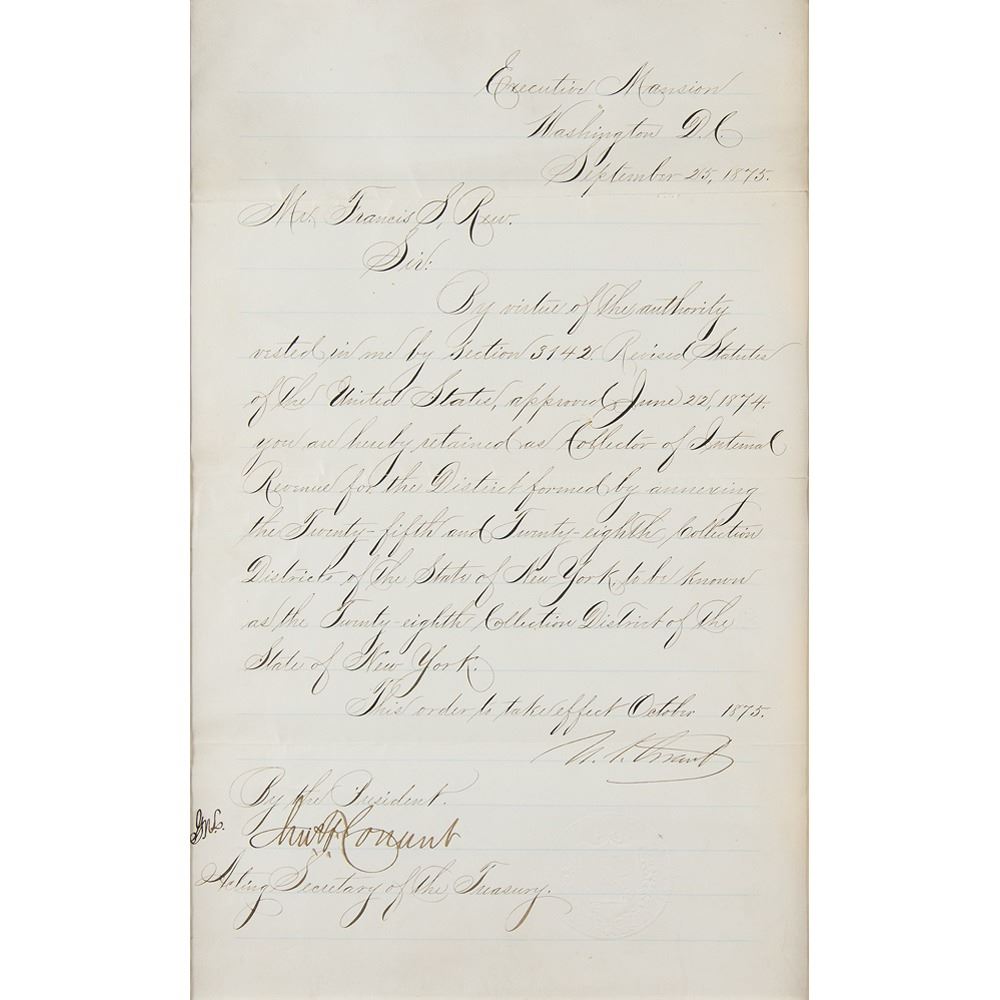 Executive Mansion
Washington D.C.
September 25, 1875.
Mr. Francis S. Rew.
Sir:
By virtue of the authority
vested in me by Section 3142. Revised Statutes
of the United States, approved June 22, 1874.
you are hereby retained as Collector of Internal
Revenue for the District formed by annexing
the Twenty-fifth and Twenty-eighth Collection
Districts of the State of New York, to be known
as the Twenty-eighth Collection District of the
State of New York.
This order to take effect October 1875.
U. S. Grant
By the President.
Chas. F. Conant
Acting Secretary of the Treasury.